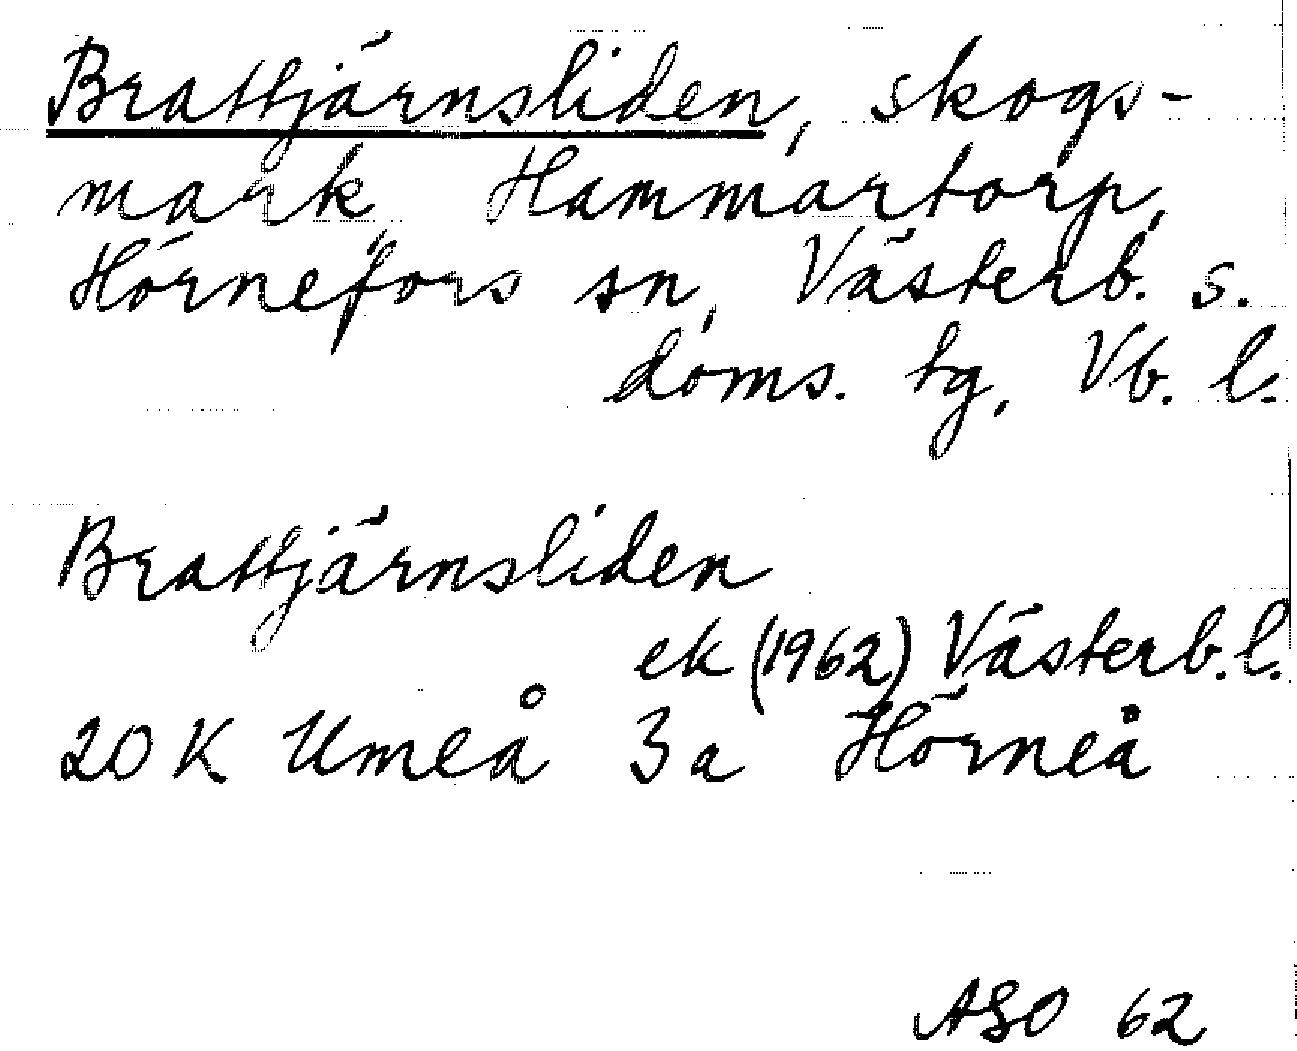 Brattjärnsliden, skogs-
mark, Hammartorp,
Hörnefors sn, Västerb. s.
doms. tg, Vb. l.
Brattjärnsliden
ek (1962) Västerb. l.
20 K Umeå 3 a Hörneå
ASO 62